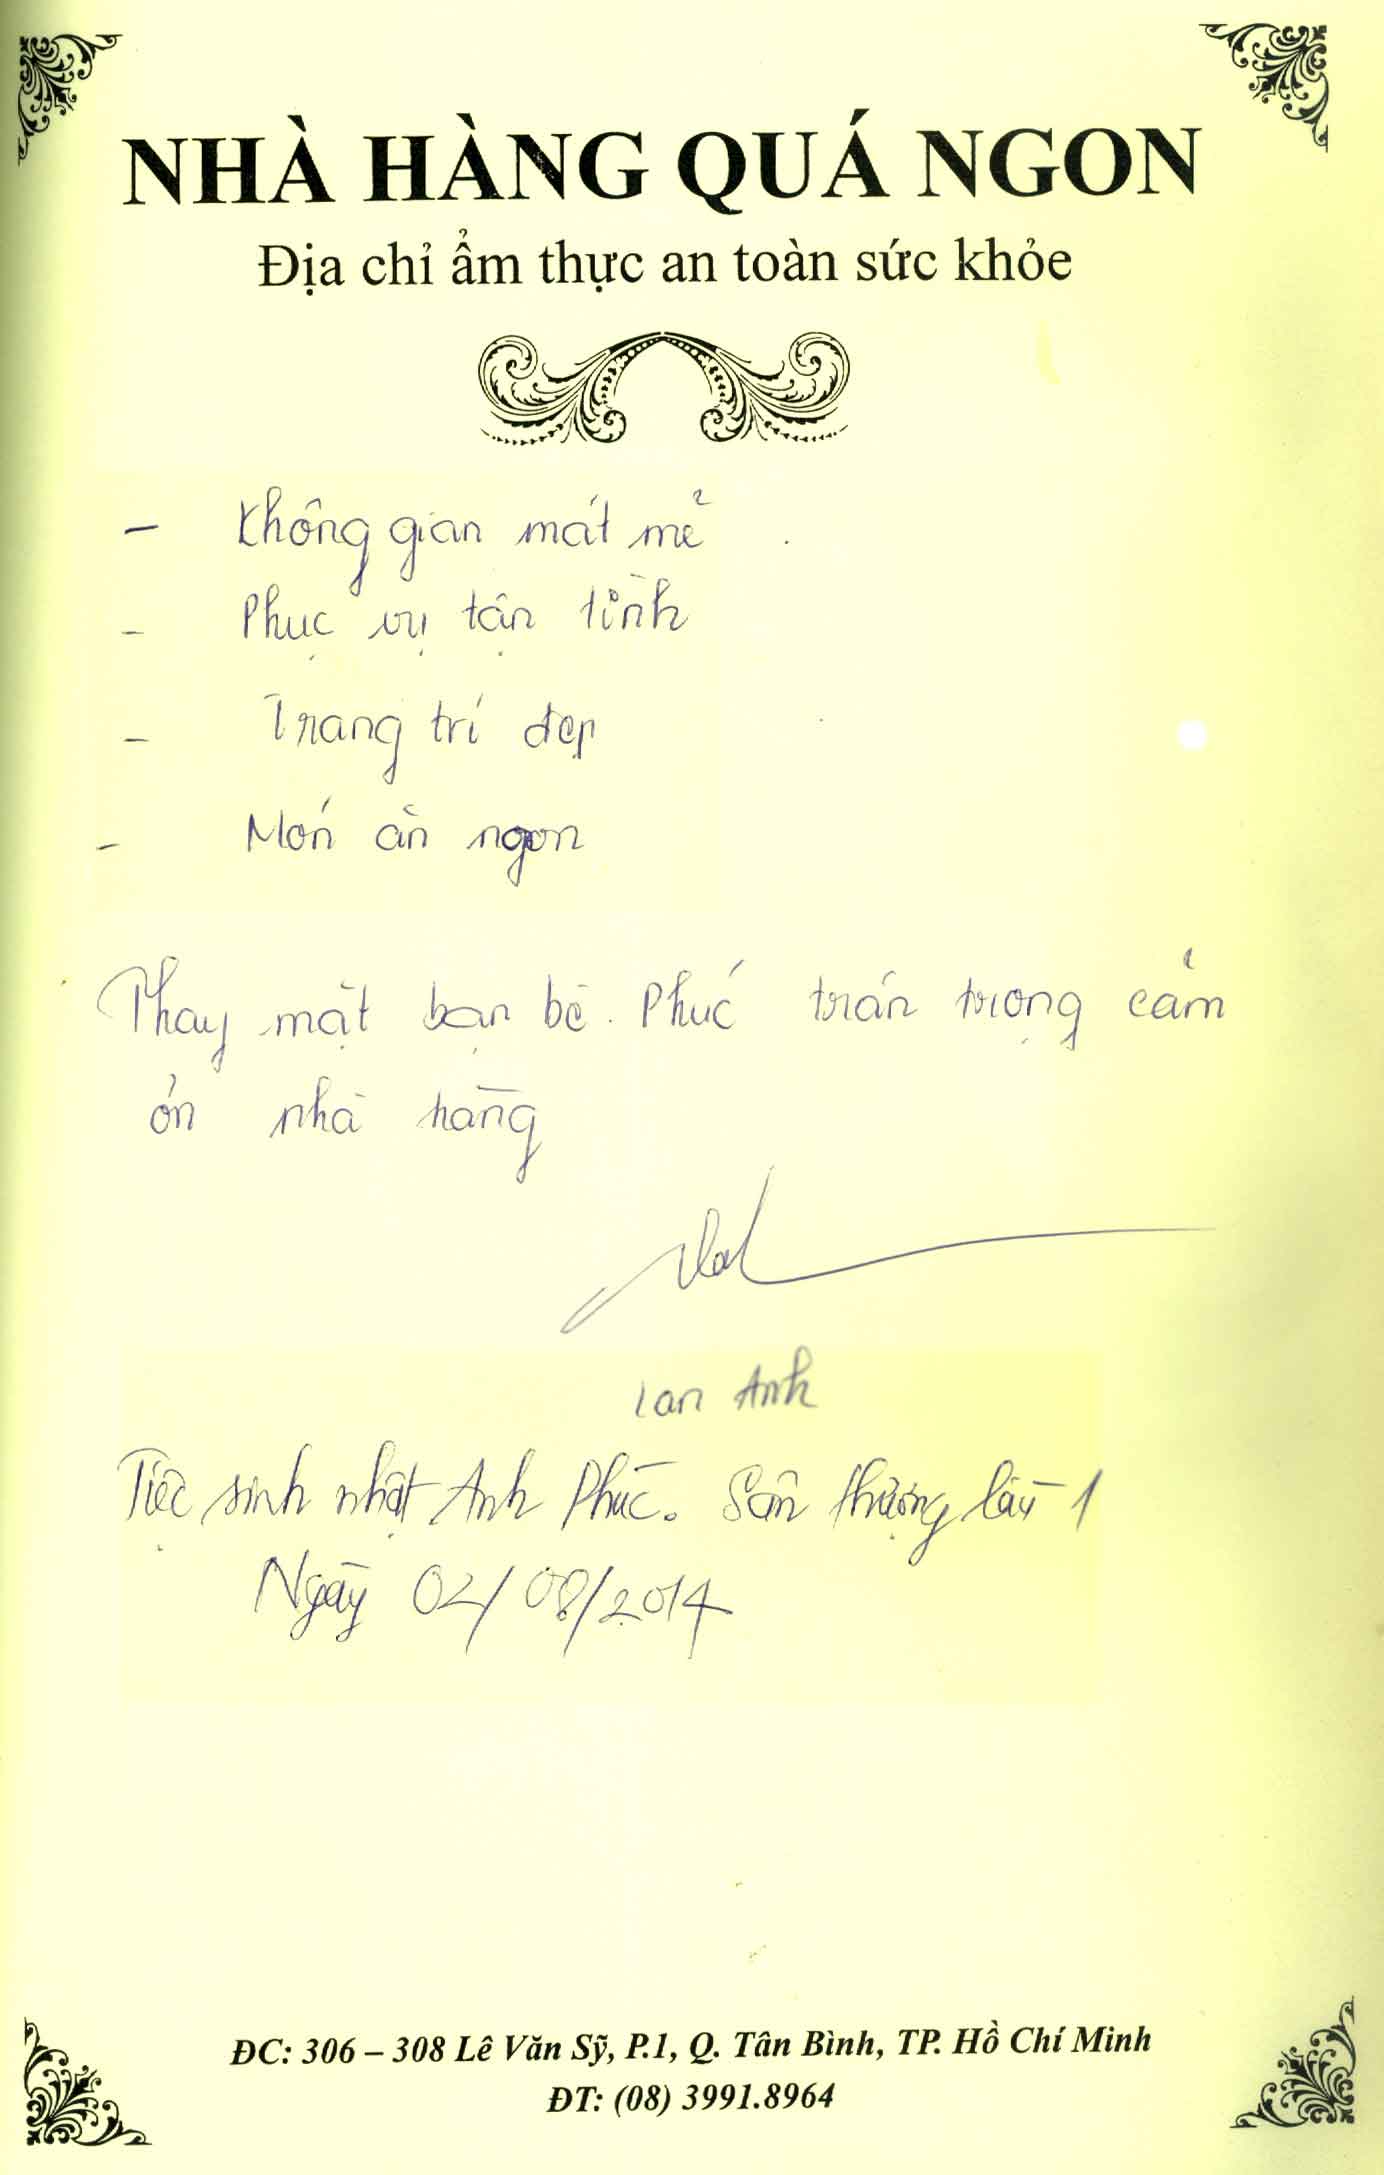 NHÀ HÀNG QUÁ NGON
Địa chỉ ẩm thực an toàn sức khỏe
- Không gian mát mẻ
- Phục vụ tận tình
- Trang trí đẹp
- Món ăn ngon
Thay mặt bạn bè Phúc trân trọng cảm
ơn nhà hàng
Lan Anh
Tiệc sinh nhật Anh Phúc. Sân thượng lầu 1
Ngày 02/08/2014
ĐC: 306 – 308 Lê Văn Sỹ, P.1, Q. Tân Bình, TP. Hồ Chí Minh
ĐT: (08) 3991.8964